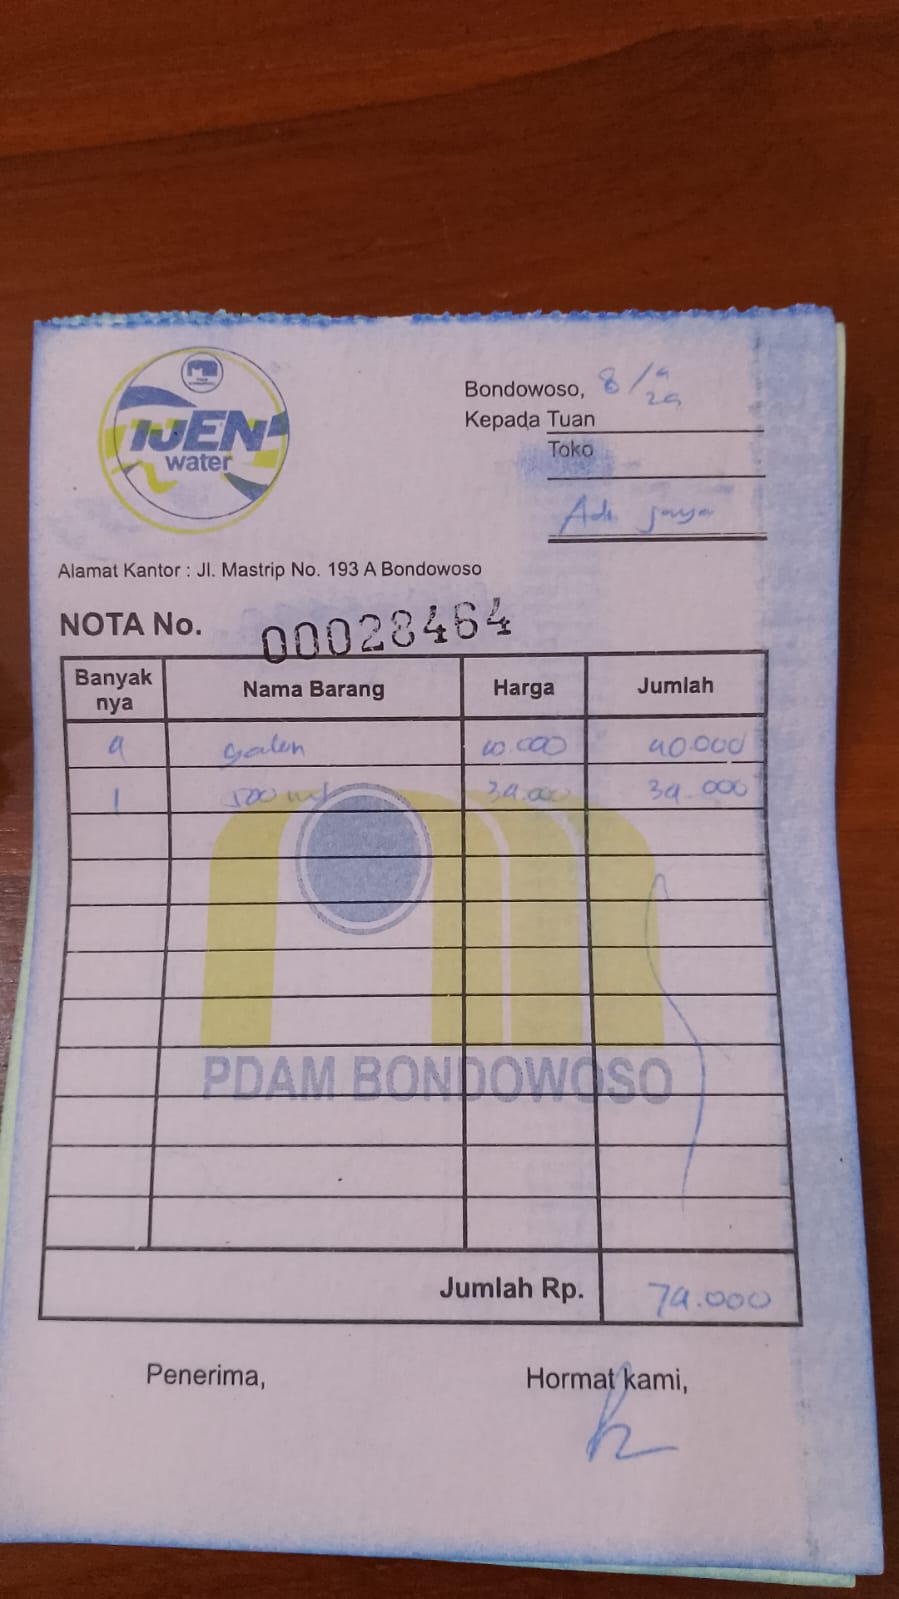 IJEN
water
Bondowoso, 8/4
24
Kepada Tuan
Toko
Adi jaya
Alamat Kantor : Jl. Mastrip No. 193 A Bondowoso
NOTA No. 00028464
Banyak nya Nama Barang Harga Jumlah
4 galon 10.000 40.000
1 500 ml 34.000 34.000
PDAM BONDOWOSO
Jumlah Rp. 74.000
Penerima, Hormat kami,